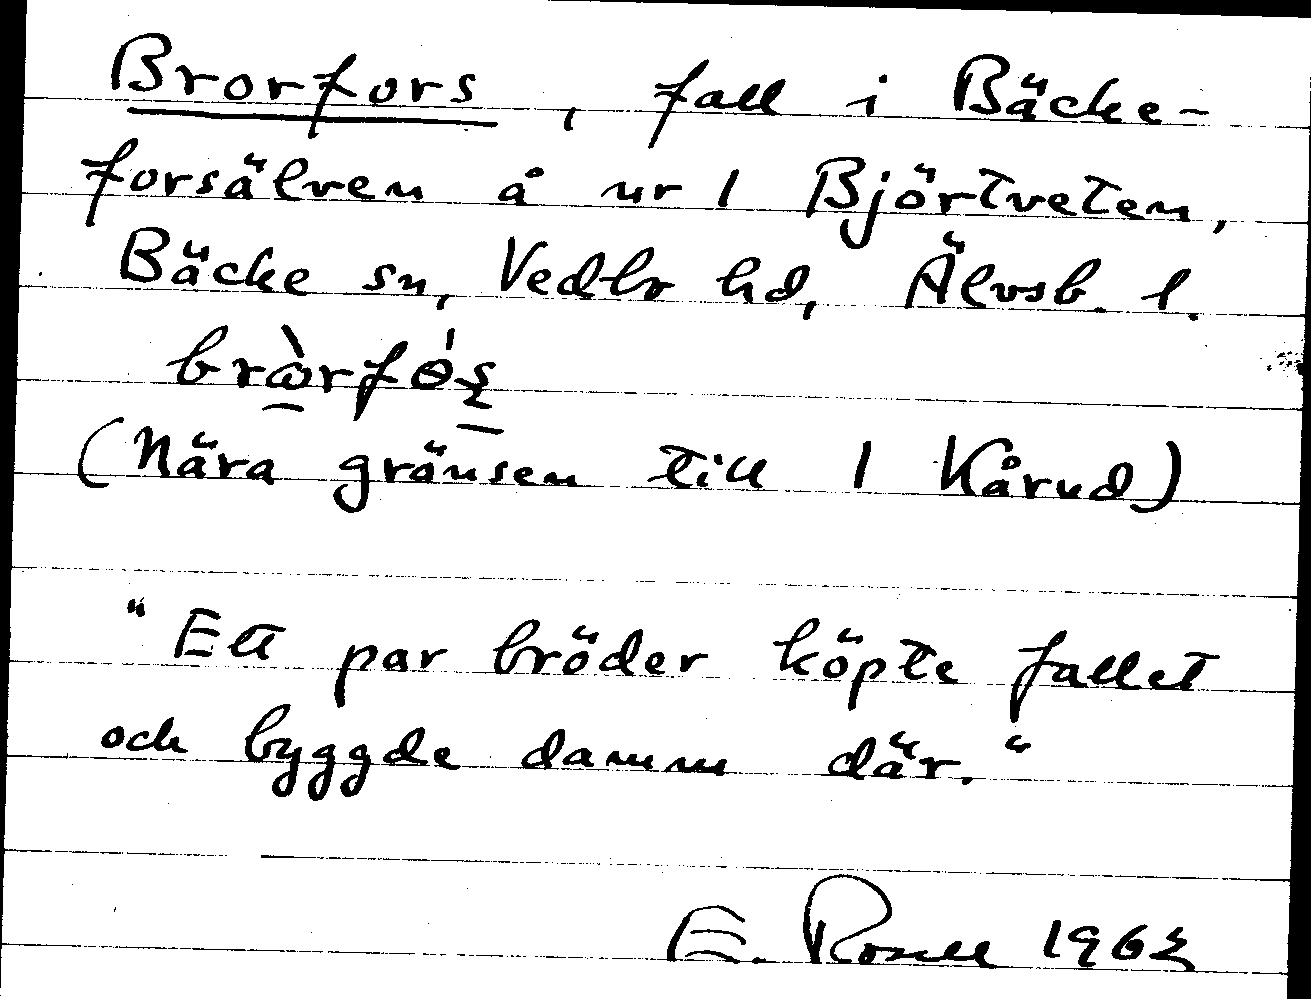 Brorfors, fall i Bäcke-
forsälven å nr 1 Björtveten,
Bäcke sn, Vedbo hd, Älvsb. l.
(Nära gränsen till 1 Kårud)
"Ett par bröder köpte fallet
och byggde damm där."
E. Rosell 1963